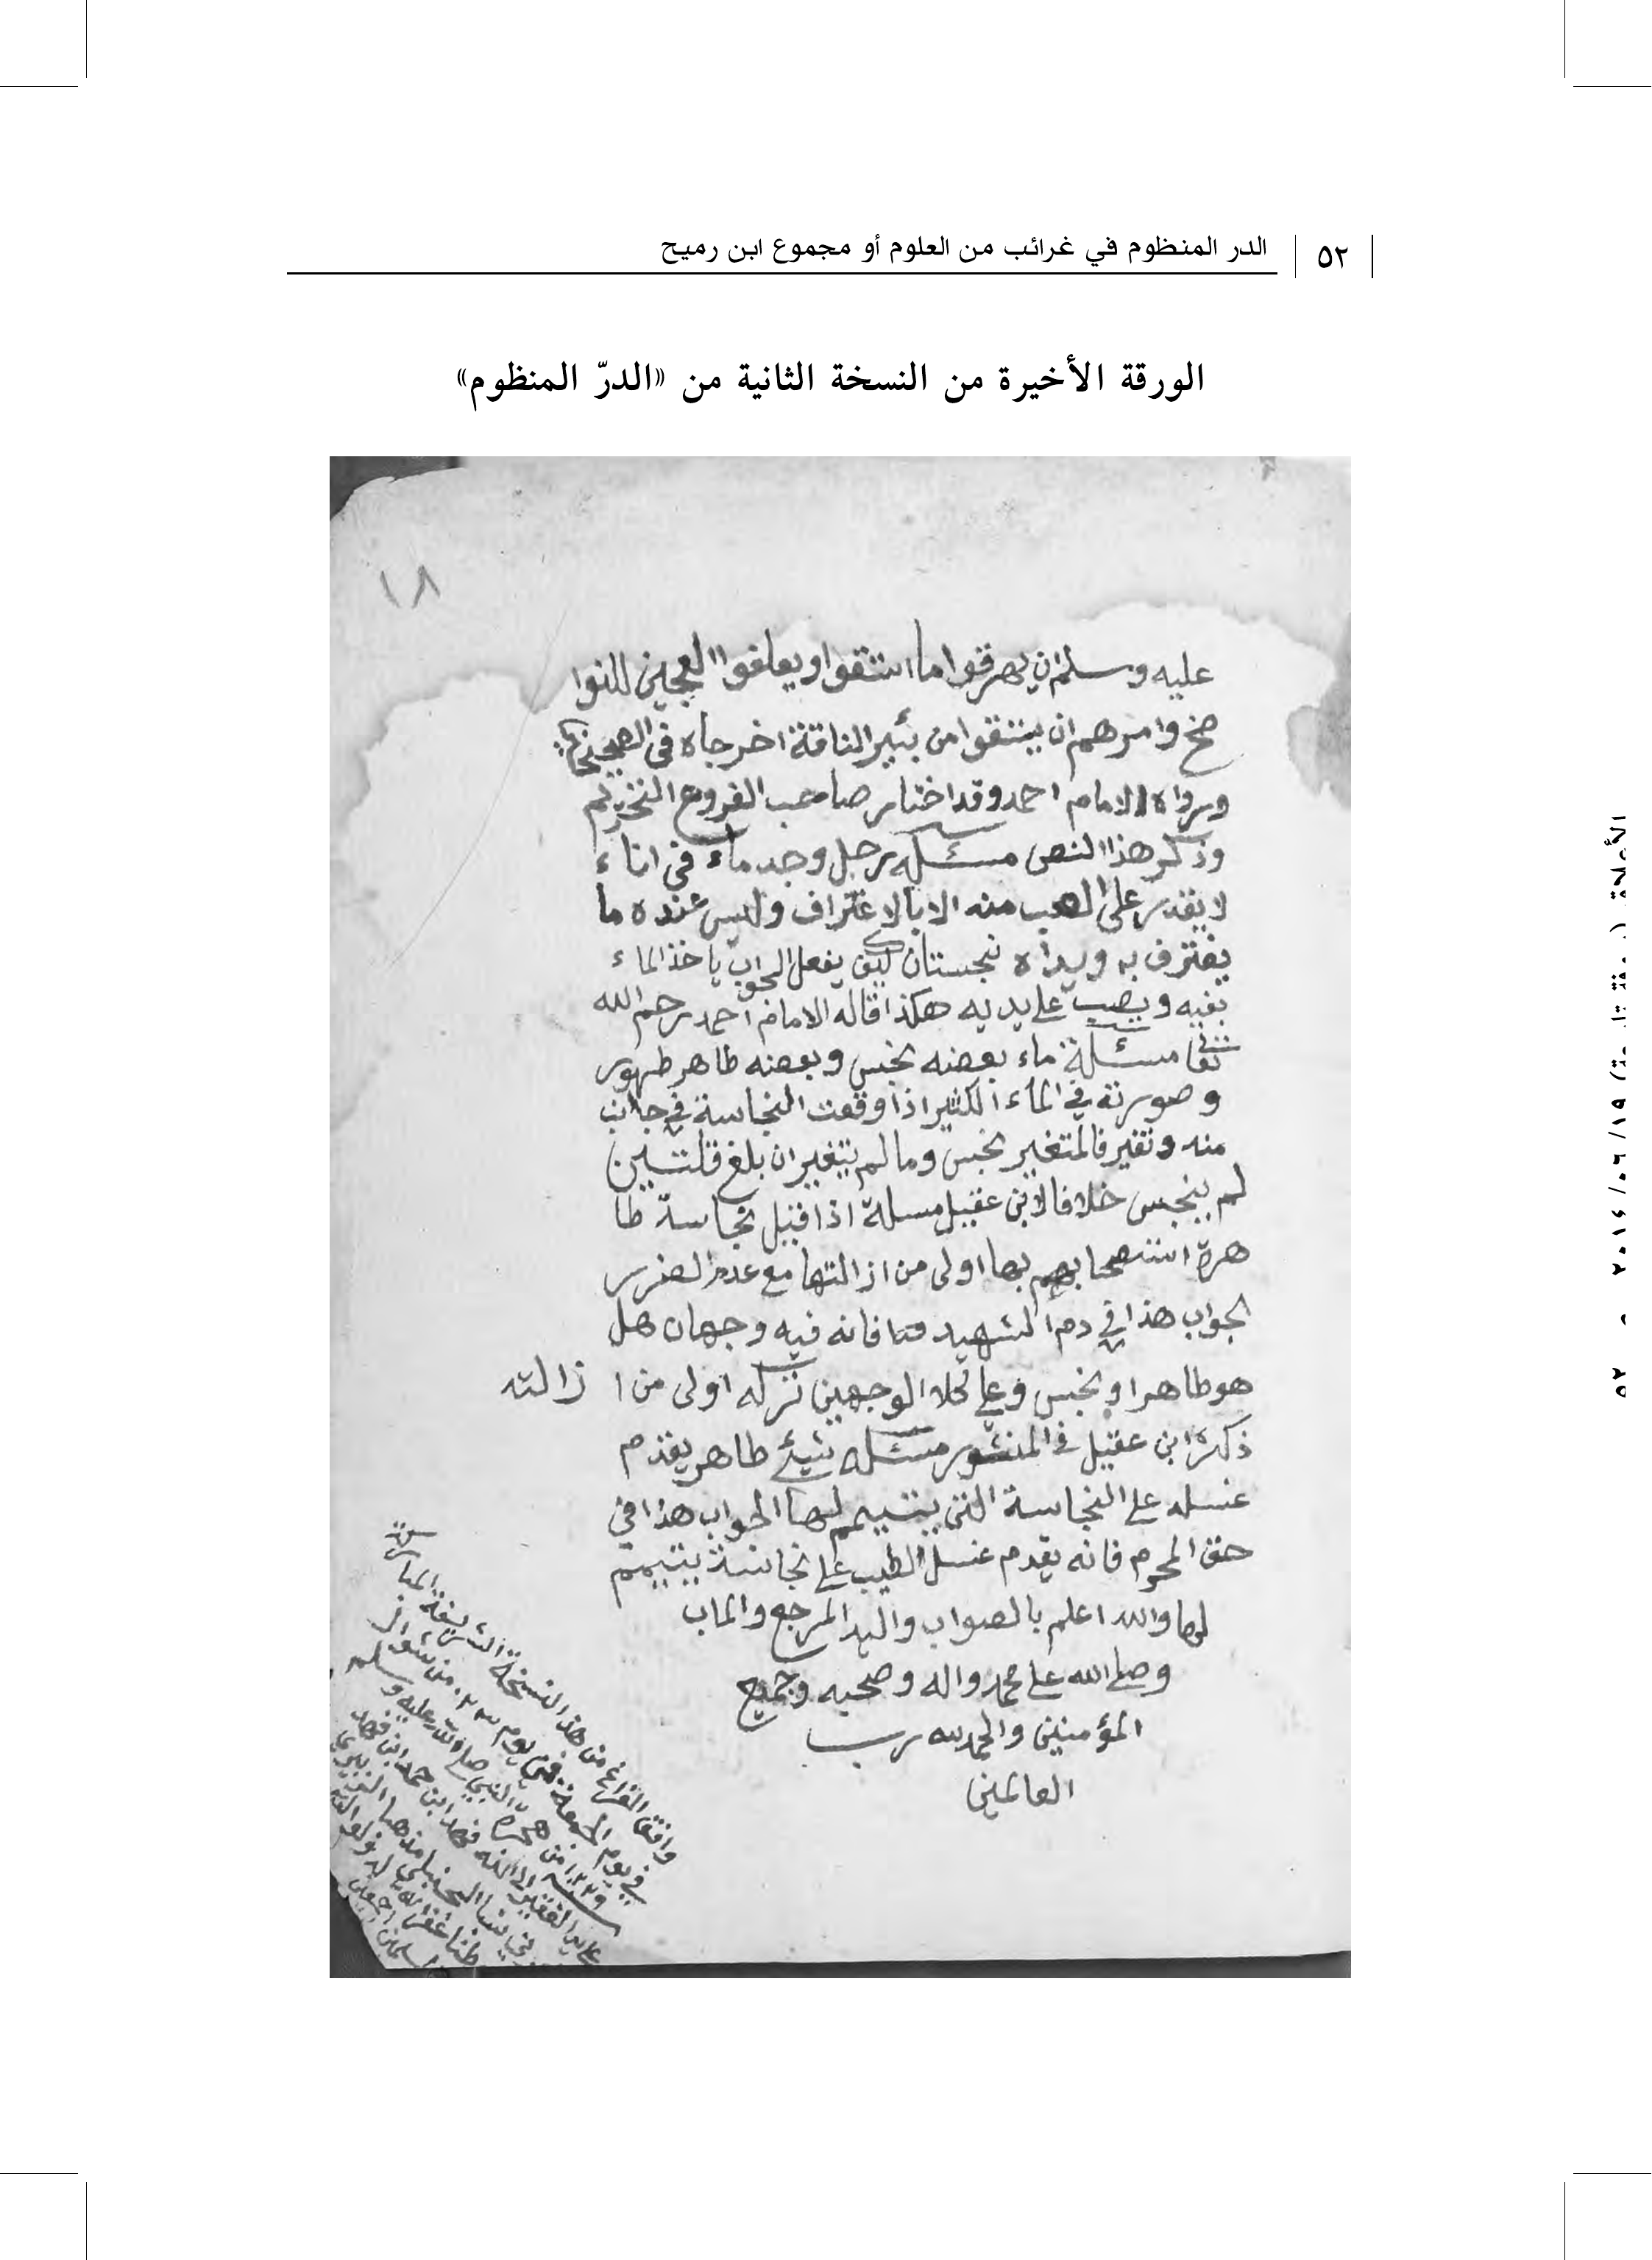 ٥٢
الدر المنظوم في غرائب من العلوم أو مجموع ابن رميح
الورقة الأخيرة من النسخة الثانية من «الدرّ المنظوم»
١٨
عليه وسلم ان يهرقوا ما استقوا ويعلفوا العجين للنوا
ضح وامرهم ان يستقوا من بئير الناقة اخرجاه في الصحيحين
ورواه الامام احمد وقد اختار صاحب الفروع التحريم
وذكر هذا النص مسئله رجل وجد ماء في اناء
لا يقدر على الصب منه الا بالاغتراف وليس عنده ما
يغترف به ويداه نجستان كيف يفعل الجواب ياخذ الماء
بفيه ويصب على يديه هكذا قاله الامام احمد رحمه الله
تعا مسئلة ماء بعضه نجس وبعضه طاهر طهور
وصورته في الماء الكثير اذا وقعت النجاسة في جانب
منه وتغير فالمتغير نجس وما لم يتغير ان بلغ قلتين
لم ينجس خلافا لابن عقيل مسلة اذا قيل نجاسة طا
هرة استصحابهم بها اولى من ازالتها مع عدم الضرر
الجواب هذا في دم الشهيد فانه فيه وجهان هل
هو طاهر او نجس وعلى كلا الوجهين تركه اولى من ا زالته
ذكره ابن عقيل في المنثور مسئله شيئ طاهر يقدم
غسله على النجاسة التي يتيمم لها الجواب هذا في
حق المحرم فانه يقدم غسل الطيب على نجاسة يتيمم
لها والله اعلم بالصواب واليه المرجع والماب
وصلى الله على محمد واله وصحبه وجميع
المؤمنين والحمد لله رب
العالمين
وافق الفراغ من هذا النسخة الشريفة المباركة
في يوم الجمعة في يوم ٢٣ من شوال
١٢٢٩ من هجرة النبي صلى الله عليه وسلم
على يد الفقير الى الله فهد ابن حمد ابن فهد
الحنبلي مذهبا
غفر الله له
المسلمين اجمعين
٥٢